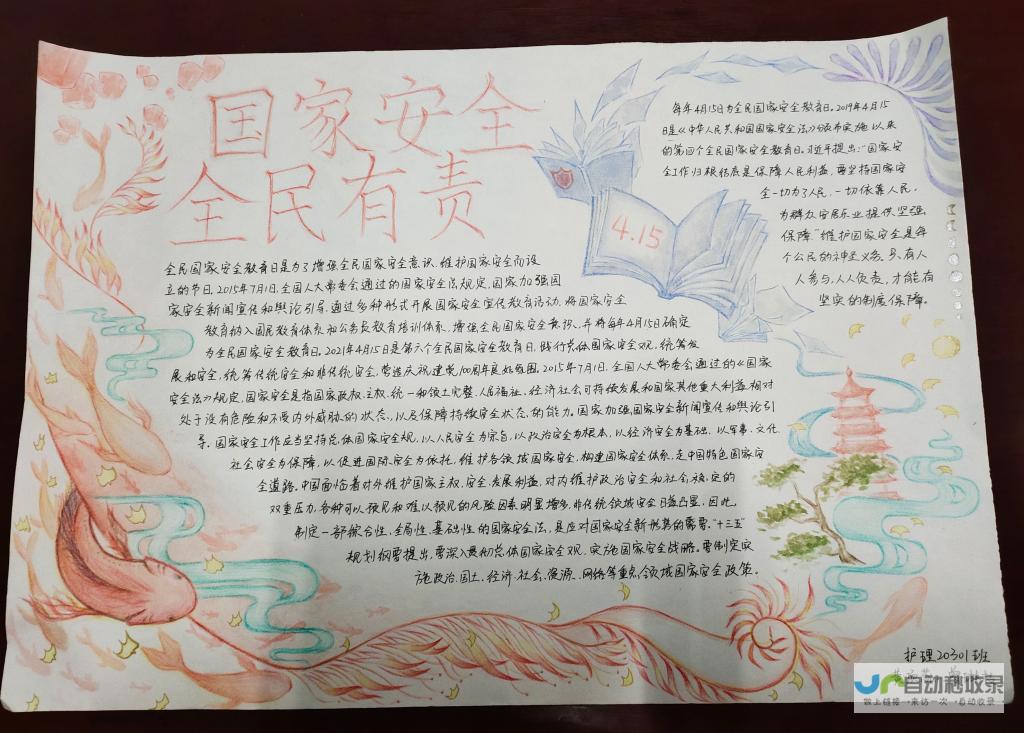 国家安全
全民有责
每年4月15日为全民国家安全教育日。2019年4月15
日是《中华人民共和国国家安全法》颁布实施以来
的第四个全民国家安全教育日。习近平提出:“国家安
全工作归根结底是保障人民利益，要坚持国家安
全一切为了人民，一切依靠人民，
为群众安居乐业提供坚强
保障”维护国家安全是每
个公民的神圣义务，只有人
人参与，人人负责，才能有
坚实的制度保障。
4.15
全民国家安全教育日是为了增强全民国家安全意识，维护国家安全而设
立的节日，2015年7月1日，全国人大常委会通过的国家安全法规定，国家加强国
家安全新闻宣传和舆论引导，通过多种形式开展国家安全宣传教育活动，将国家安全
教育纳入国民教育体系和公务员教育培训体系，增强全民国家安全意识，并将每年4月15日确定
为全民国家安全教育日。2021年4月15日是第六个全民国家安全教育日，践行总体国家安全观，统筹发
展和安全，统筹传统安全和非传统安全，营造庆祝建党100周年良好氛围。2015年7月1日，全国人大常委会通过的《国家
安全法》规定，国家安全是指国家政权、主权、统一和领土完整、人民福祉、经济社会可持续发展和国家其他重大利益相对
处于没有危险和不受内外威胁的状态，以及保障持续安全状态的能力。国家加强国家安全新闻宣传和舆论引
导。国家安全工作应当坚持总体国家安全观，以人民安全为宗旨，以政治安全为根本，以经济安全为基础，以军事、文化、
社会安全为保障，以促进国际安全为依托，维护各领域国家安全，构建国家安全体系，走中国特色国家安
全道路。中国面临着对外维护国家主权、安全、发展利益，对内维护政治安全和社会稳定的
双重压力，各种可以预见和难以预见的风险因素明显增多，非传统领域安全日益凸显，因此，
制定一部综合性、全局性、基础性的国家安全法，是应对国家安全新形势的需要。“十三五”
规划纲要提出，要深入贯彻总体国家安全观，实施国家安全战略。要制定实
施政治、国土、经济、社会、资源、网络等重点领域国家安全政策。
护理20301班
自动秒收录
做上链接→来访一次→自动收录